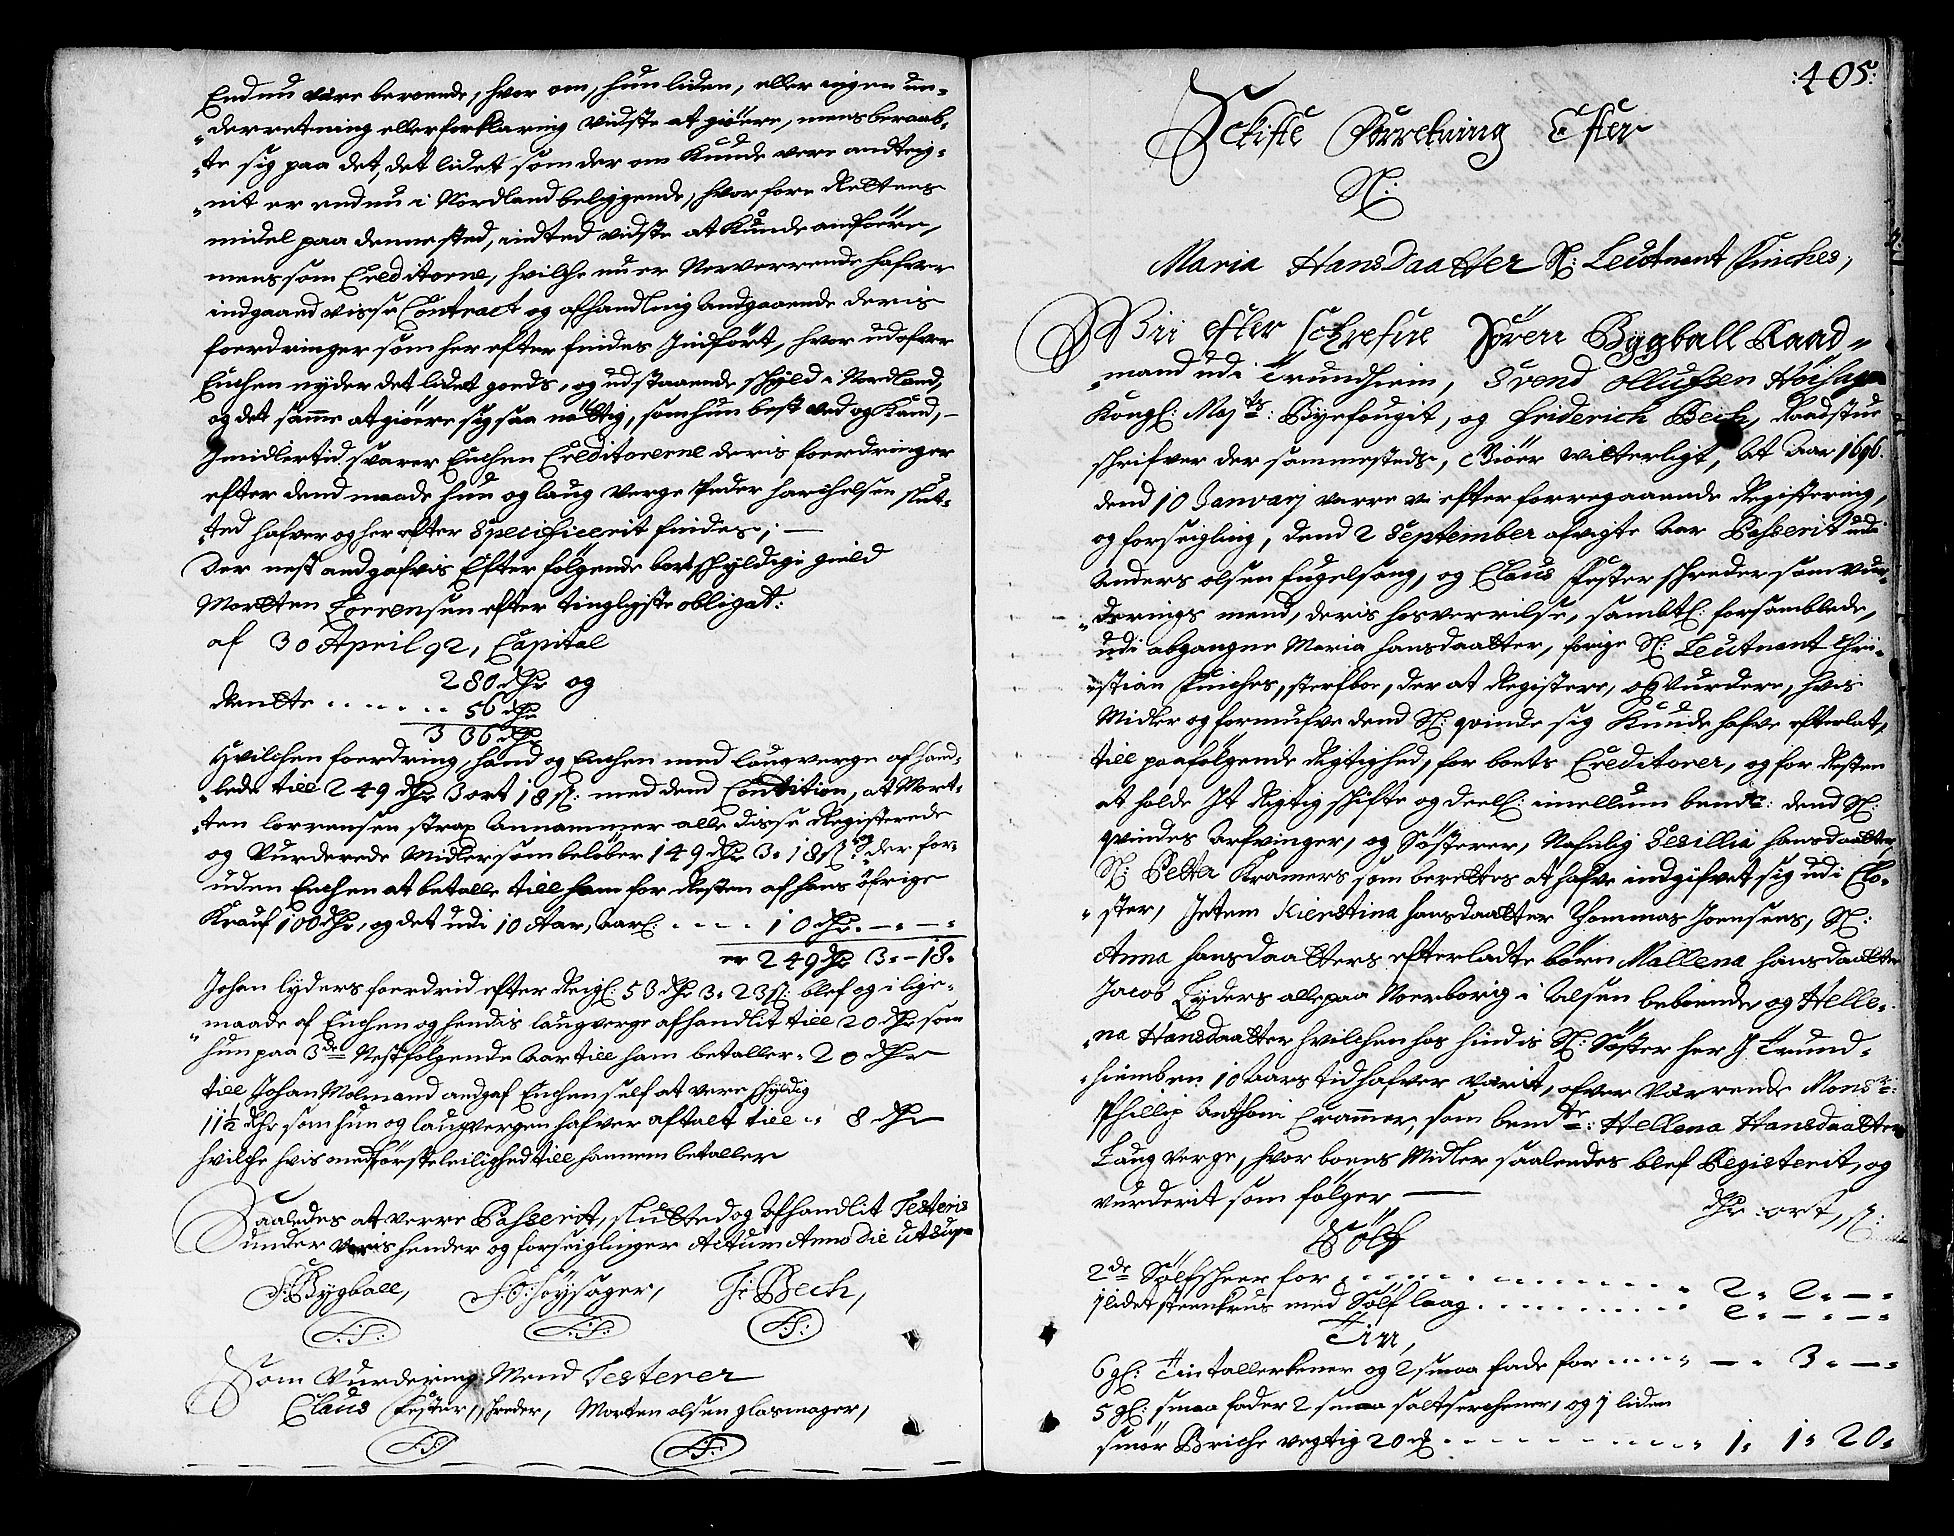 Endnu være beroende, hvor om, hun liden, eller ingen un-
derretning eller forklaring vidste at giöere, mens beraab-
te sig paa det, det lidet som der om Kunde vere andteig-
nit er endnu i Nordland beliggende, hvorfore Rettens
midel paa denne sted, indted vidste at Kunde anföere,
mens som Creditorene, hvilche nu er Nerverrende hafver
indgaaed visse Contract og afhandling Andgaaende deris
foerdringer som her efter findes Indfört, hvor udofver
Enchen nyder det lidet goeds, og udstaaende schyld i Nordland,
og det samme at giöere sig saa nöttig, som hun best ved og Kand,
Imidlertid svarer Enchen Creditorerne deris foerdringer
efter dend maade hun og laug verge Peder harchelsen slut-
ted hafver og her efter Specificerit findes;
Der nest andgafvis Efterfölgende bortschyldige gield
Mortten Lorrensen efter tinglyste obligat:
af 30 April 92, Capital
280 dhr og
Rentte 56 dhr
336 dhr
Hvilchen foerdring, hand og Enchen med laugverge afhand-
lede till 249 dhr 3 ort 18 s: med dend Contition, at Mort-
ten lorrensen strax Annammer alle disse Registerede
og Vurderede Midler som belöber 149 dhr 3- 18 s og der for-
uden Enchen at betalle till ham for Resten af hans öfrige
Krauf 100 dhr, og det udi 10 Aar, aarl: 10 dhr - -
er 249 dhr 3 - 18
Johan lyders foerdrid efter Regl: 53 dhr 3- 23 s: blef og i lige-
maade af Enchen og hendis laugverge afhandlit till 20 dhr som
hun paa 3de Nestfölgende Aar till ham betaller 20 dhr
till Johan Molmand andgaf Enchen self at vere schyldig
11½ dhr som hun og laugvergen hafver aftalt till 8 dhr
hvilche hvis med förste leilighed till hannem betaller
Saaledes at verre Passerit, sluttet og Afhandlit Testeris
under voris hender og forseiglinger Actum Anno Die ut Supr
S: Bygball, S: O: Höysager, Fr: Bech,
L: S: L: S: L: S:
Som Vurderings Mend Testerer
Claus Fester, schreder, Morten olsen glasmager,
L: S: L: S:
:405:
Schifte Forretning Efter
Sl:
Maria Hansdaatter Sl: Leutnant Pinches,
Vii efter schrefne Sören Bygball Raad-
mand udi Trundhiem, Svend Ollufsen Höisager
Kongl: Maj ts: Byefougit, og Friderich Bech, Raadstue
schrifver der sammesteds, Giöer vitterligt, At Aar 1696
dend 10 Januarj varre vi efter forregaaende Registering,
og forseigling, dend 2 September afvigte Aar Passerit udi
Anders olsen fugelsang, og Claus Fester schreder som vur-
derings mend, deris hosverrilse, sambtl: forsamblede,
udi afgangne Maria hansdaatter, forige Sl: Leutnant Chri-
stian Pinches, sterfboe, der at Registere, og Vurdere, hvis
Midler og formufve dend Sl: qvinde sig Kunde hafve efterlat,
till paafölgende Rigtighed, for boets Creditorer, og for Resten
at holde It Rigtig schifte og deell: imellum bendte: dend Sl:
qvindes Arfvinger, og Söstere, Nafnlig Cesillia hansdaatter
Sl: Petter Kramers som berettes at hafve indgifvet sig udi Clo-
ster, Jetem Kierstina hansdaatter Thommas Joensens, Sl:
Anna hansdaatters efterladte börn Mallena hansdaatter
Jacob Lyders alle paa Noerborig i Alsen beboende, og Helle-
na Hansdaatter hvilchen hos hindis Sl: Söster her J Trund-
hiemb en 10 Aars tid hafver Varit, ofver Værrende Monsr:
Phillip Anthoni Crammer, som bendte: Hellena Hansdaatters
Laug verge, hvor boens Midler saalendes blef Registerit, og
vurderit som fölger
dhr ort, s:
Sölf
2de Sölfscheer for 2- 2- -
1 lidet steenkrus med Sölf laag 2- - -
Tin,
6 gl: Tin tallerkener og 2 smaa fade for - 3- -
5 gl: smaa fader 2 smaa saltserchener, og 1 liden
smör Briche vegtig 20 1- 1- 20-